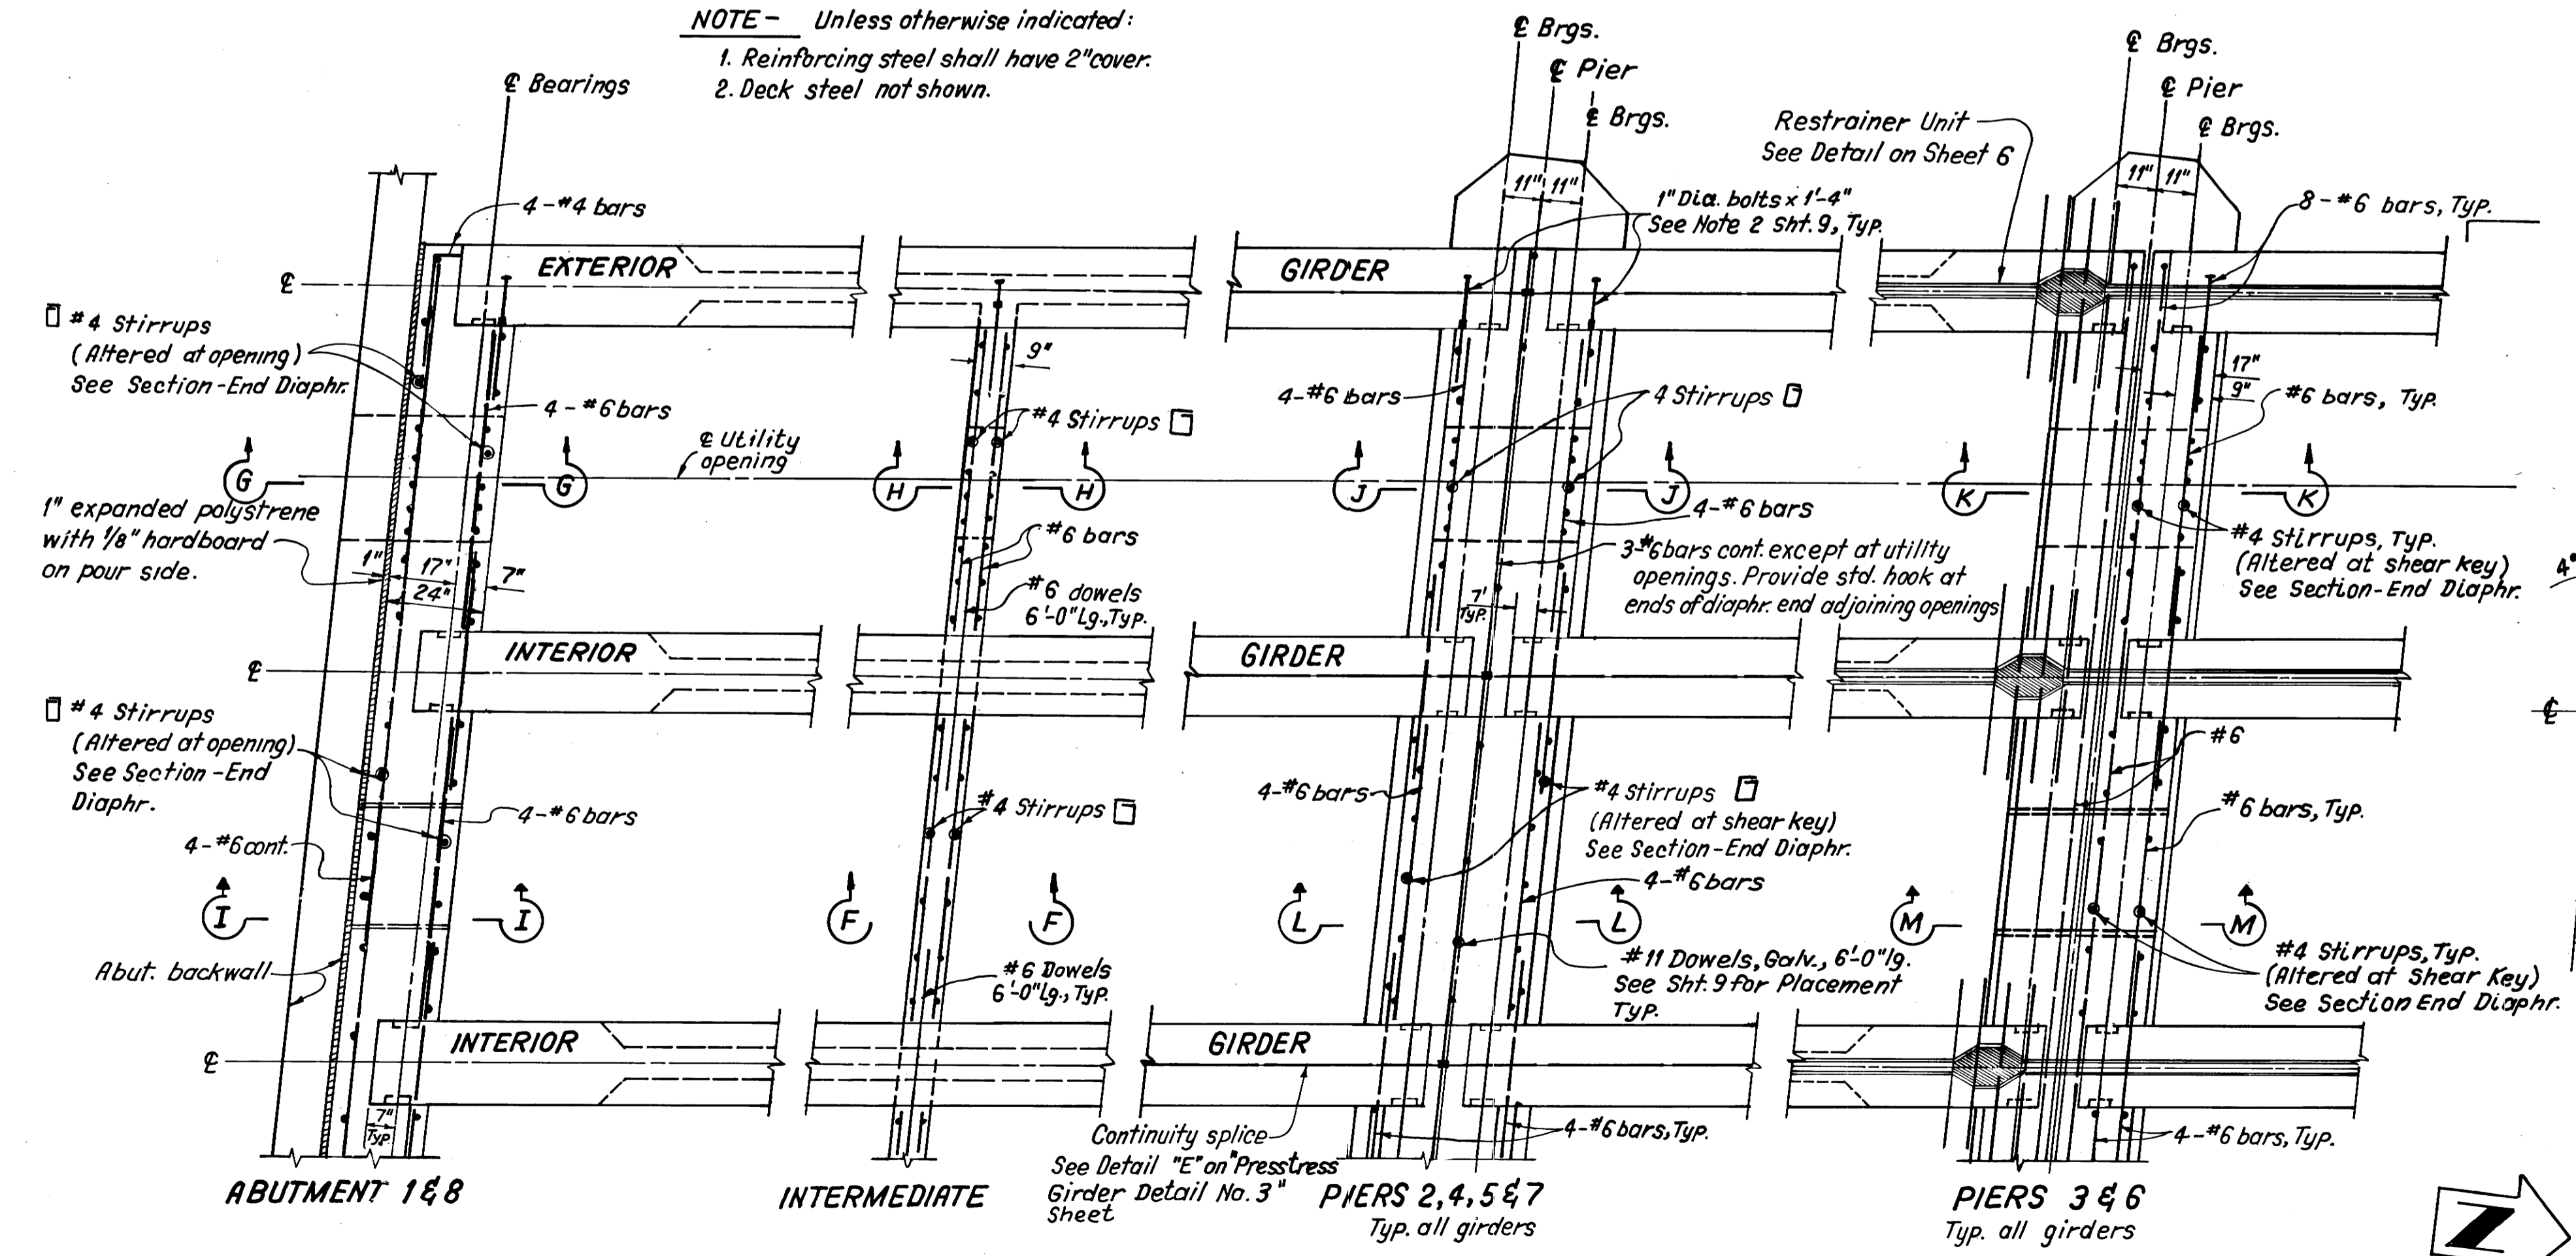 NOTE - Unless otherwise indicated:
1. Reinforcing steel shall have 2" cover.
2. Deck steel not shown.
℄ Bearings
℄ Brgs.
℄ Pier
℄ Brgs.
℄ Brgs.
℄ Pier
℄ Brgs.
Restrainer Unit
See Detail on Sheet 6
11" 11"
11" 11"
1" Dia. bolts x 1'-4"
See Note 2 Sht. 9, Typ.
8-#6 bars, Typ.
4-#4 bars
℄
EXTERIOR
GIRDER
#4 Stirrups
(Altered at opening)
See Section-End Diaphr.
4-#6 bars
9"
#4 Stirrups
4-#6 bars
4 Stirrups
17"
9"
#6 bars, Typ.
℄ Utility
opening
G
G
H
H
J
J
K
K
1" expanded polystrene
with 1/8" hardboard
on pour side.
1"
17"
24"
7"
#6 bars
#6 dowels
6'-0" Lg., Typ.
4-#6 bars
3-#6 bars cont. except at utility
openings. Provide std. hook at
ends of diaphr. end adjoining openings
7'
Typ.
#4 Stirrups, Typ.
(Altered at shear key)
See Section-End Diaphr.
4"
℄
INTERIOR
GIRDER
℄
#4 Stirrups
(Altered at opening)
See Section-End
Diaphr.
4-#6 bars
4-#6 cont.
#4 Stirrups
4-#6 bars
#4 Stirrups
(Altered at shear key)
See Section-End Diaphr.
4-#6 bars
#6
#6 bars, Typ.
I
I
F
F
L
L
M
M
Abut. backwall
#6 Dowels
6'-0" Lg., Typ.
#11 Dowels, Galv., 6'-0" lg.
See Sht. 9 for Placement
Typ.
#4 Stirrups, Typ.
(Altered at Shear Key)
See Section End Diaphr.
℄
INTERIOR
GIRDER
7"
Typ
Continuity splice
See Detail "E" on "Presstress
Girder Detail No. 3"
Sheet
4-#6 bars, Typ.
4-#6 bars, Typ.
ABUTMENT 1 & 8
INTERMEDIATE
PIERS 2, 4, 5 & 7
Typ. all girders
PIERS 3 & 6
Typ. all girders
Z